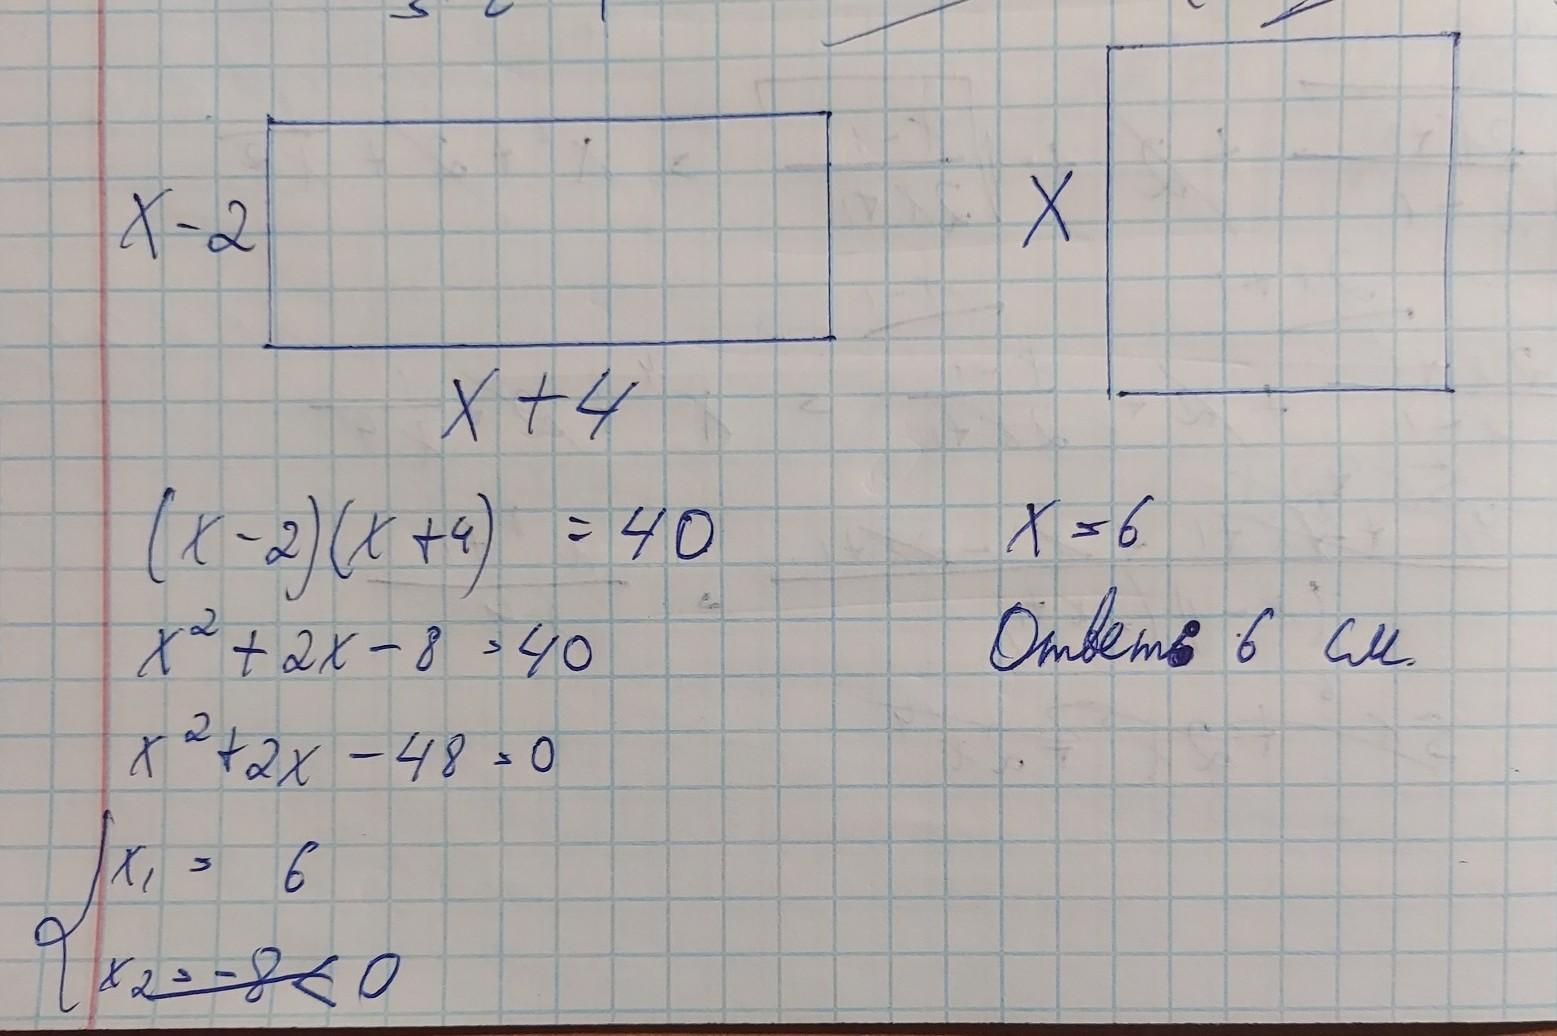 x-2
x+4
x
(x-2)(x+4) = 40
x²+2x-8=40
x²+2x-48=0
x₁ = 6
x₂=-8<0
x=6
Ответ: 6 см.